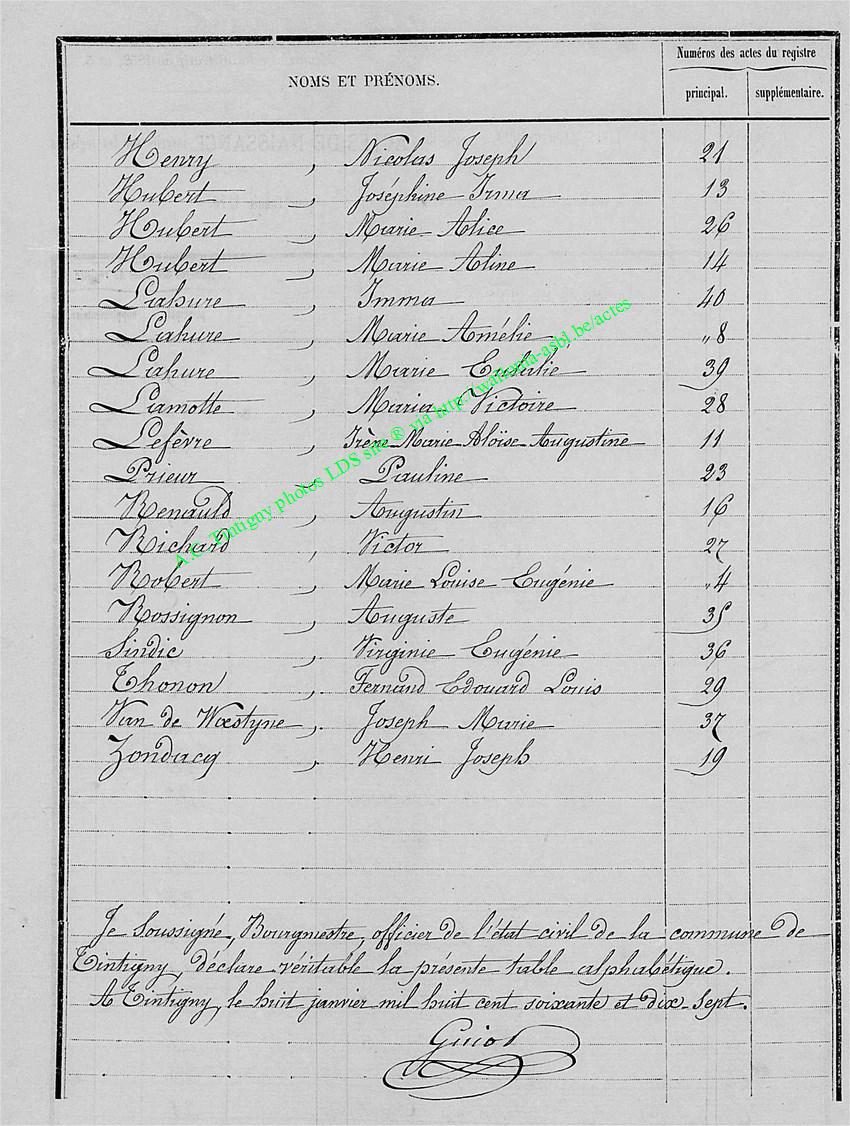 Numéros des actes du registre
NOMS ET PRÉNOMS.
principal. supplémentaire.
Henry , Nicolas Joseph 21
Hubert , Joséphine Irma 13
Hubert , Marie Alice 26
Hubert , Marie Aline 14
Lahure , Imma 40
Lahure , Marie Amélie „8
Lahure , Marie Eulalie 39
Lamotte , Maria Victoire 28
Lefèvre , Irène Marie Aloïse Augustine 11
Prieur , Pauline 23
Renauld , Augustin 16
Richard , Victor 27
Robert , Marie Louise Eugénie „4
Rossignon , Auguste 35
Sindic , Virginie Eugénie 36
Thonon , Fernand Edouard Louis 29
Van de Woestyne , Joseph Marie 37
Zondacq , Henri Joseph 19
Je soussigné, Bourgmestre, officier de l'état civil de la commune de
Tintigny, déclare véritable la présente table alphabétique.
A Tintigny, le huit janvier mil huit cent soixante et dix-sept.
Guiot
A.C. Tintigny photos LDS site ® via http://wallonia-asbl.be/actes